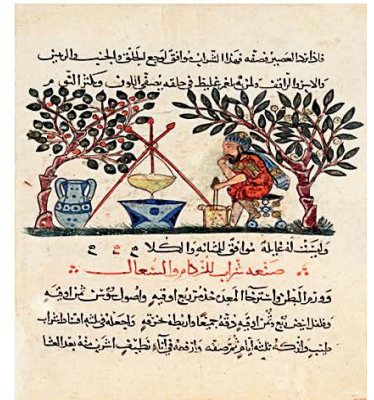 فاذا برد العصير فصفه فهذا الشراب موافق لوجع الحلق والجنب والرئتين
والاسر والرائف ولمن به بلغم غليظ في حلقه يصفي اللون ويكثر النوم
وليست له غايله موافق للمثانه والكلا
صنعه شراب للزكام والسعال
وورم البطن واسترخا المعدة خذ مر ربع اوقيه واصول سوسن ثمن اوقيه
وفلفل ابيض ربع وثمن اوقيه دقه جميعا واربطه بخرقه واجعله في ثلثه اقساط شراب
طيب واتركه ثلثه ايام ثم صفه وارفعه في اناء نظيف اشرب منه بعد العشا